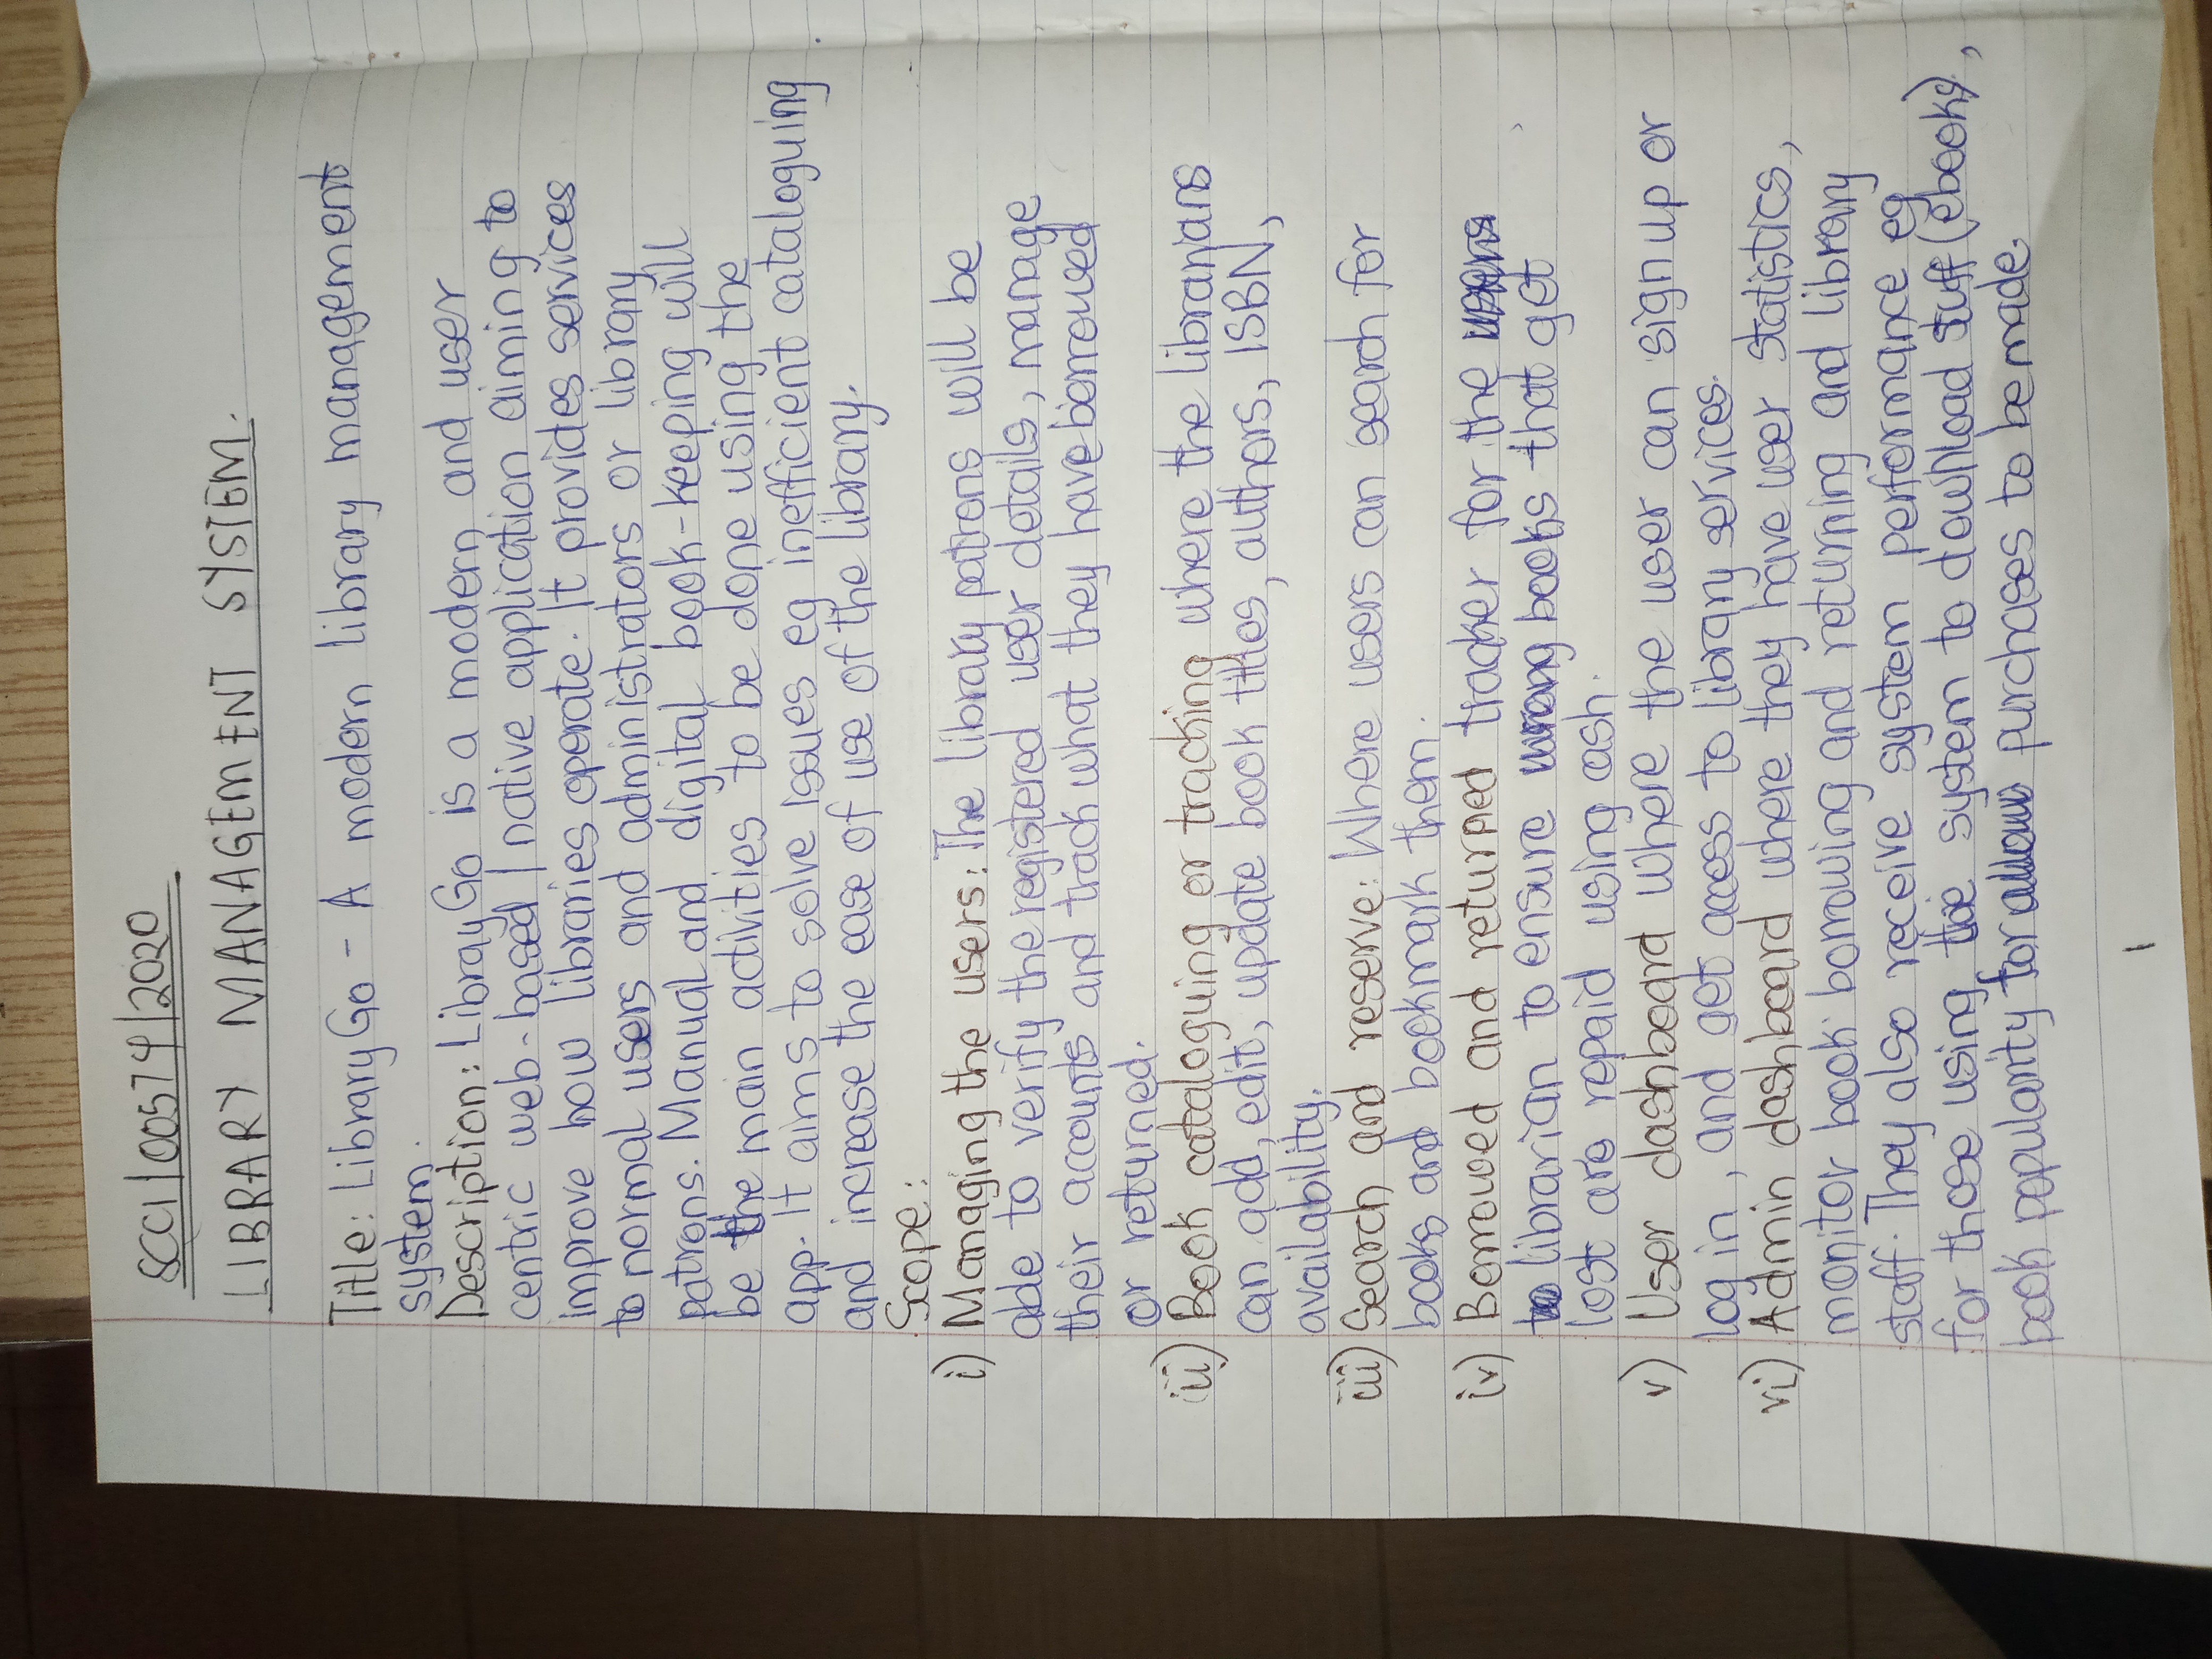 SCCI/00574/2020
LIBRARY MANAGEMENT SYSTEM.
Title: LibraryGo - A modern library management
system.
Description: LibrayGo is a modern and user
centric web-based/native application aiming to
improve how libraries operate. It provides services
to normal users and administrators or library
patrons. Manual and digital book-keeping will
be the main activities to be done using the
app. It aims to solve issues eg inefficient cataloguing
and increase the ease of use of the library.
Scope:
i) Managing the users: The library patrons will be
able to verify the registered user details, manage
their accounts and track what they have borrowed
or returned.
ii) Book cataloguing or tracking where the librarians
can add, edit, update book titles, authors, ISBN,
availability.
iii) Search and reserve: Where users can search for
books and bookmark them.
iv) Borrowed and returned tracker for the
librarian to ensure books that get
lost are repaid using cash.
v) User dashboard where the user can sign up or
log in, and get access to library services.
vi) Admin dashboard where they have user statistics,
monitor book borrowing and returning and library
staff. They also receive system performance eg
for those using the system to download stuff (ebooks),
book popularity for purchases to be made.
1